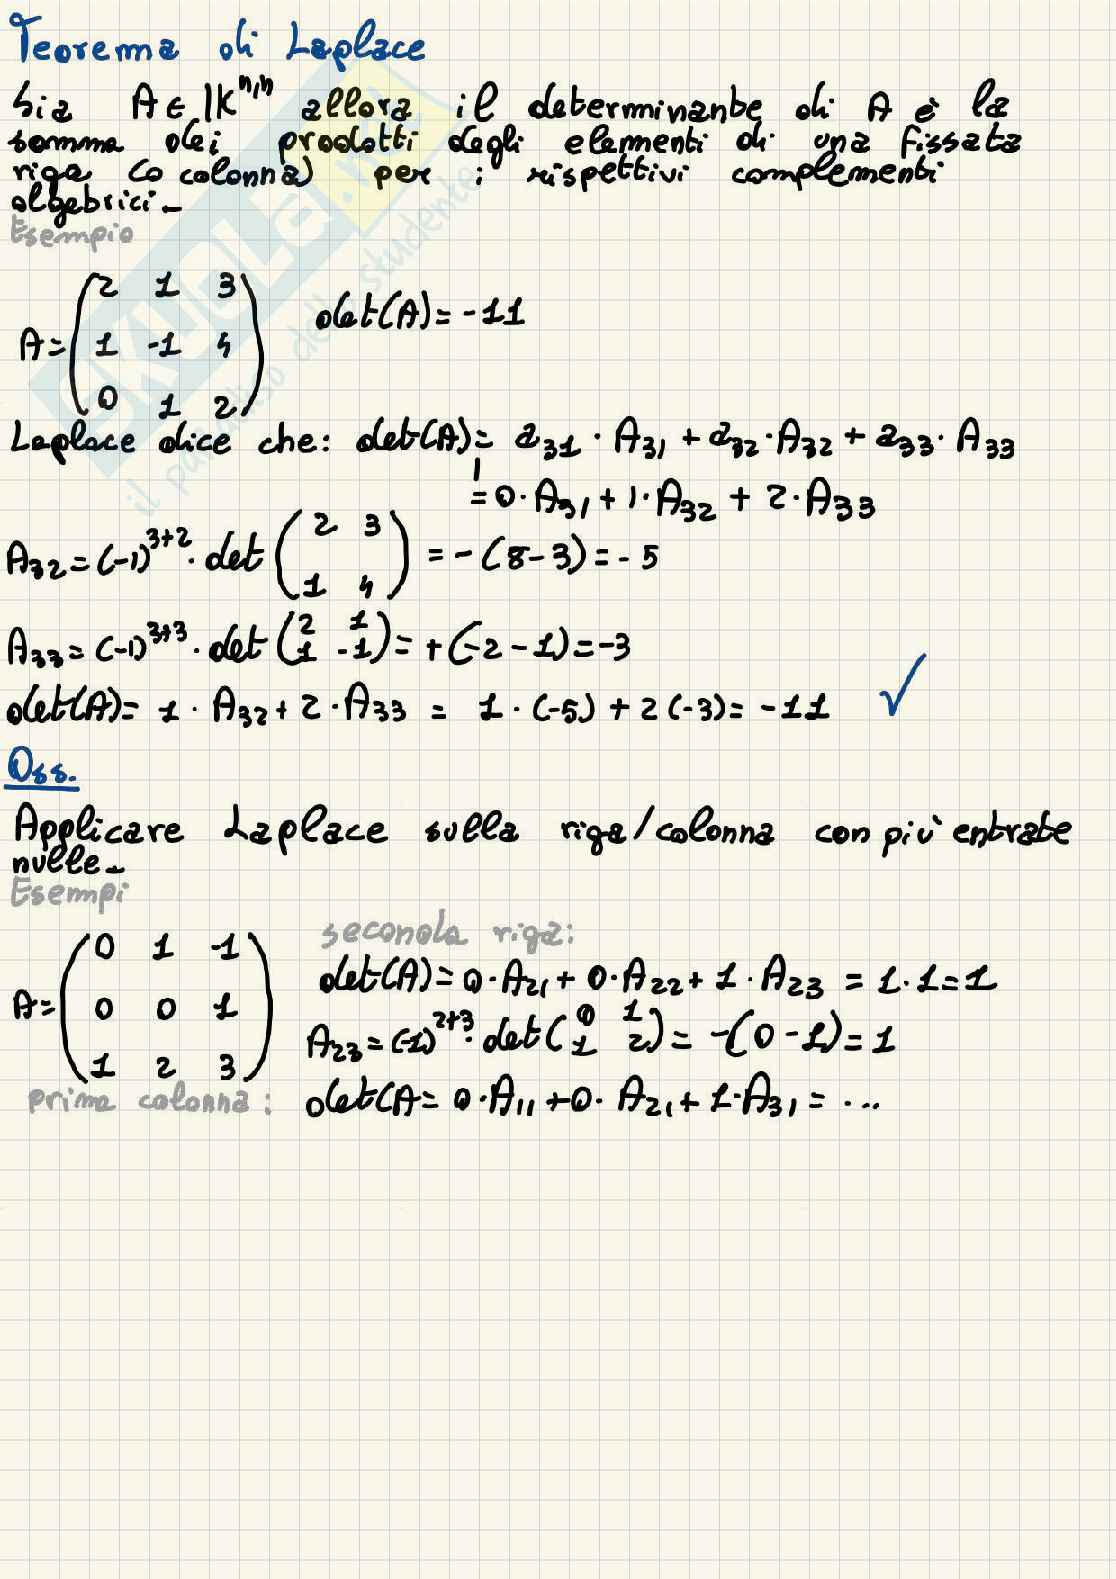 Teorema di Laplace
Sia A ∈ K^n,n allora il determinante di A è la
somma dei prodotti degli elementi di una fissata
riga (o colonna) per i rispettivi complementi
algebrici.
Esempio
A = (2 1 3
1 -1 4
0 1 2)
det(A) = -11
Laplace dice che: det(A) = a31 · A31 + a32 · A32 + a33 · A33
= 0 · A31 + 1 · A32 + 2 · A33
A32 = (-1)^3+2 · det (2 3
1 4) = -(8-3) = -5
A33 = (-1)^3+3 · det (2 1
1 -1) = +(-2-1) = -3
det(A) = 1 · A32 + 2 · A33 = 1 · (-5) + 2(-3) = -11 ✓
Oss.
Applicare Laplace sulla riga/colonna con più entrate
nulle.
Esempi
A = (0 1 -1
0 0 1
1 2 3)
seconda riga:
det(A) = 0 · A21 + 0 · A22 + 1 · A23 = 1 · 1 = 1
A23 = (-1)^2+3 · det (0 1
1 2) = -(0-1) = 1
prima colonna: det(A = 0 · A11 + 0 · A21 + 1 · A31 = ...
SKUOLA.net
il paradiso dello studente